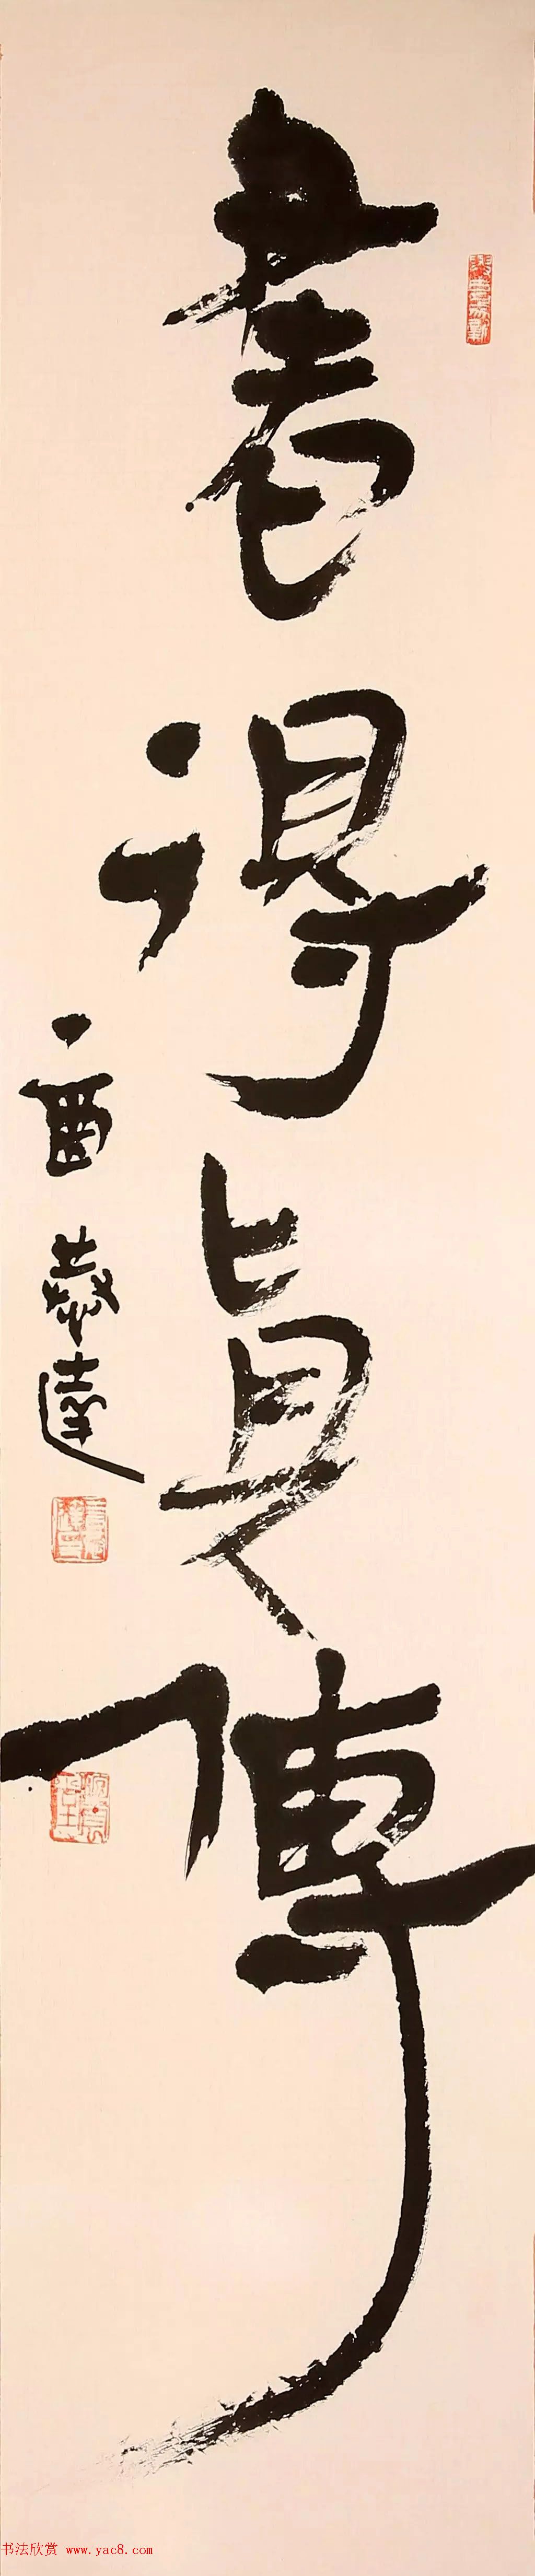 書得眞傳
酉 恭達
书法欣赏 www.yac8.com